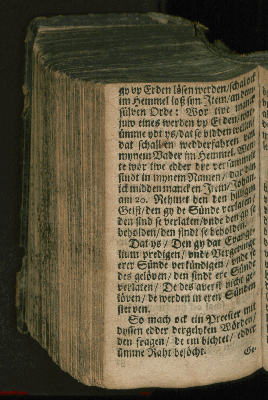 gy vp Erden lösen werden/schal ock
im Hemmel loß syn. Item/an dem
sülven Orde: Wor twe manck
juw eines werden vp Erden/wor
ümme ydt ys/dat se bidden willen
dat schal en wedderfahren van
mynem Vader im Hemmel. Wente
wor twe edder dre versammelt
sindt in mynem Namen/dar bin
ick midden manck en. Item/Johan.
am 20. Nehmet hen den hilligen
Geist/den gy de Sünde verlaten/
den sind se verlaten/vnde den gy se
beholden/den sindt se beholden.
Dat ys/Den gy dat Evange-
lium predigen/vnde Vergevinge
erer Sünde verkündigen/vnde se
des gelöven/den sindt ere Sünde
verlaten/De des averst nicht ge-
löven/de werden in eren Sünden
sterven.
So mach ock ein Preester mit
dyssen edder dergelyken Wörden/
den fragen/de en bichtet/edder
ümme Raht besöcht.
Ge-